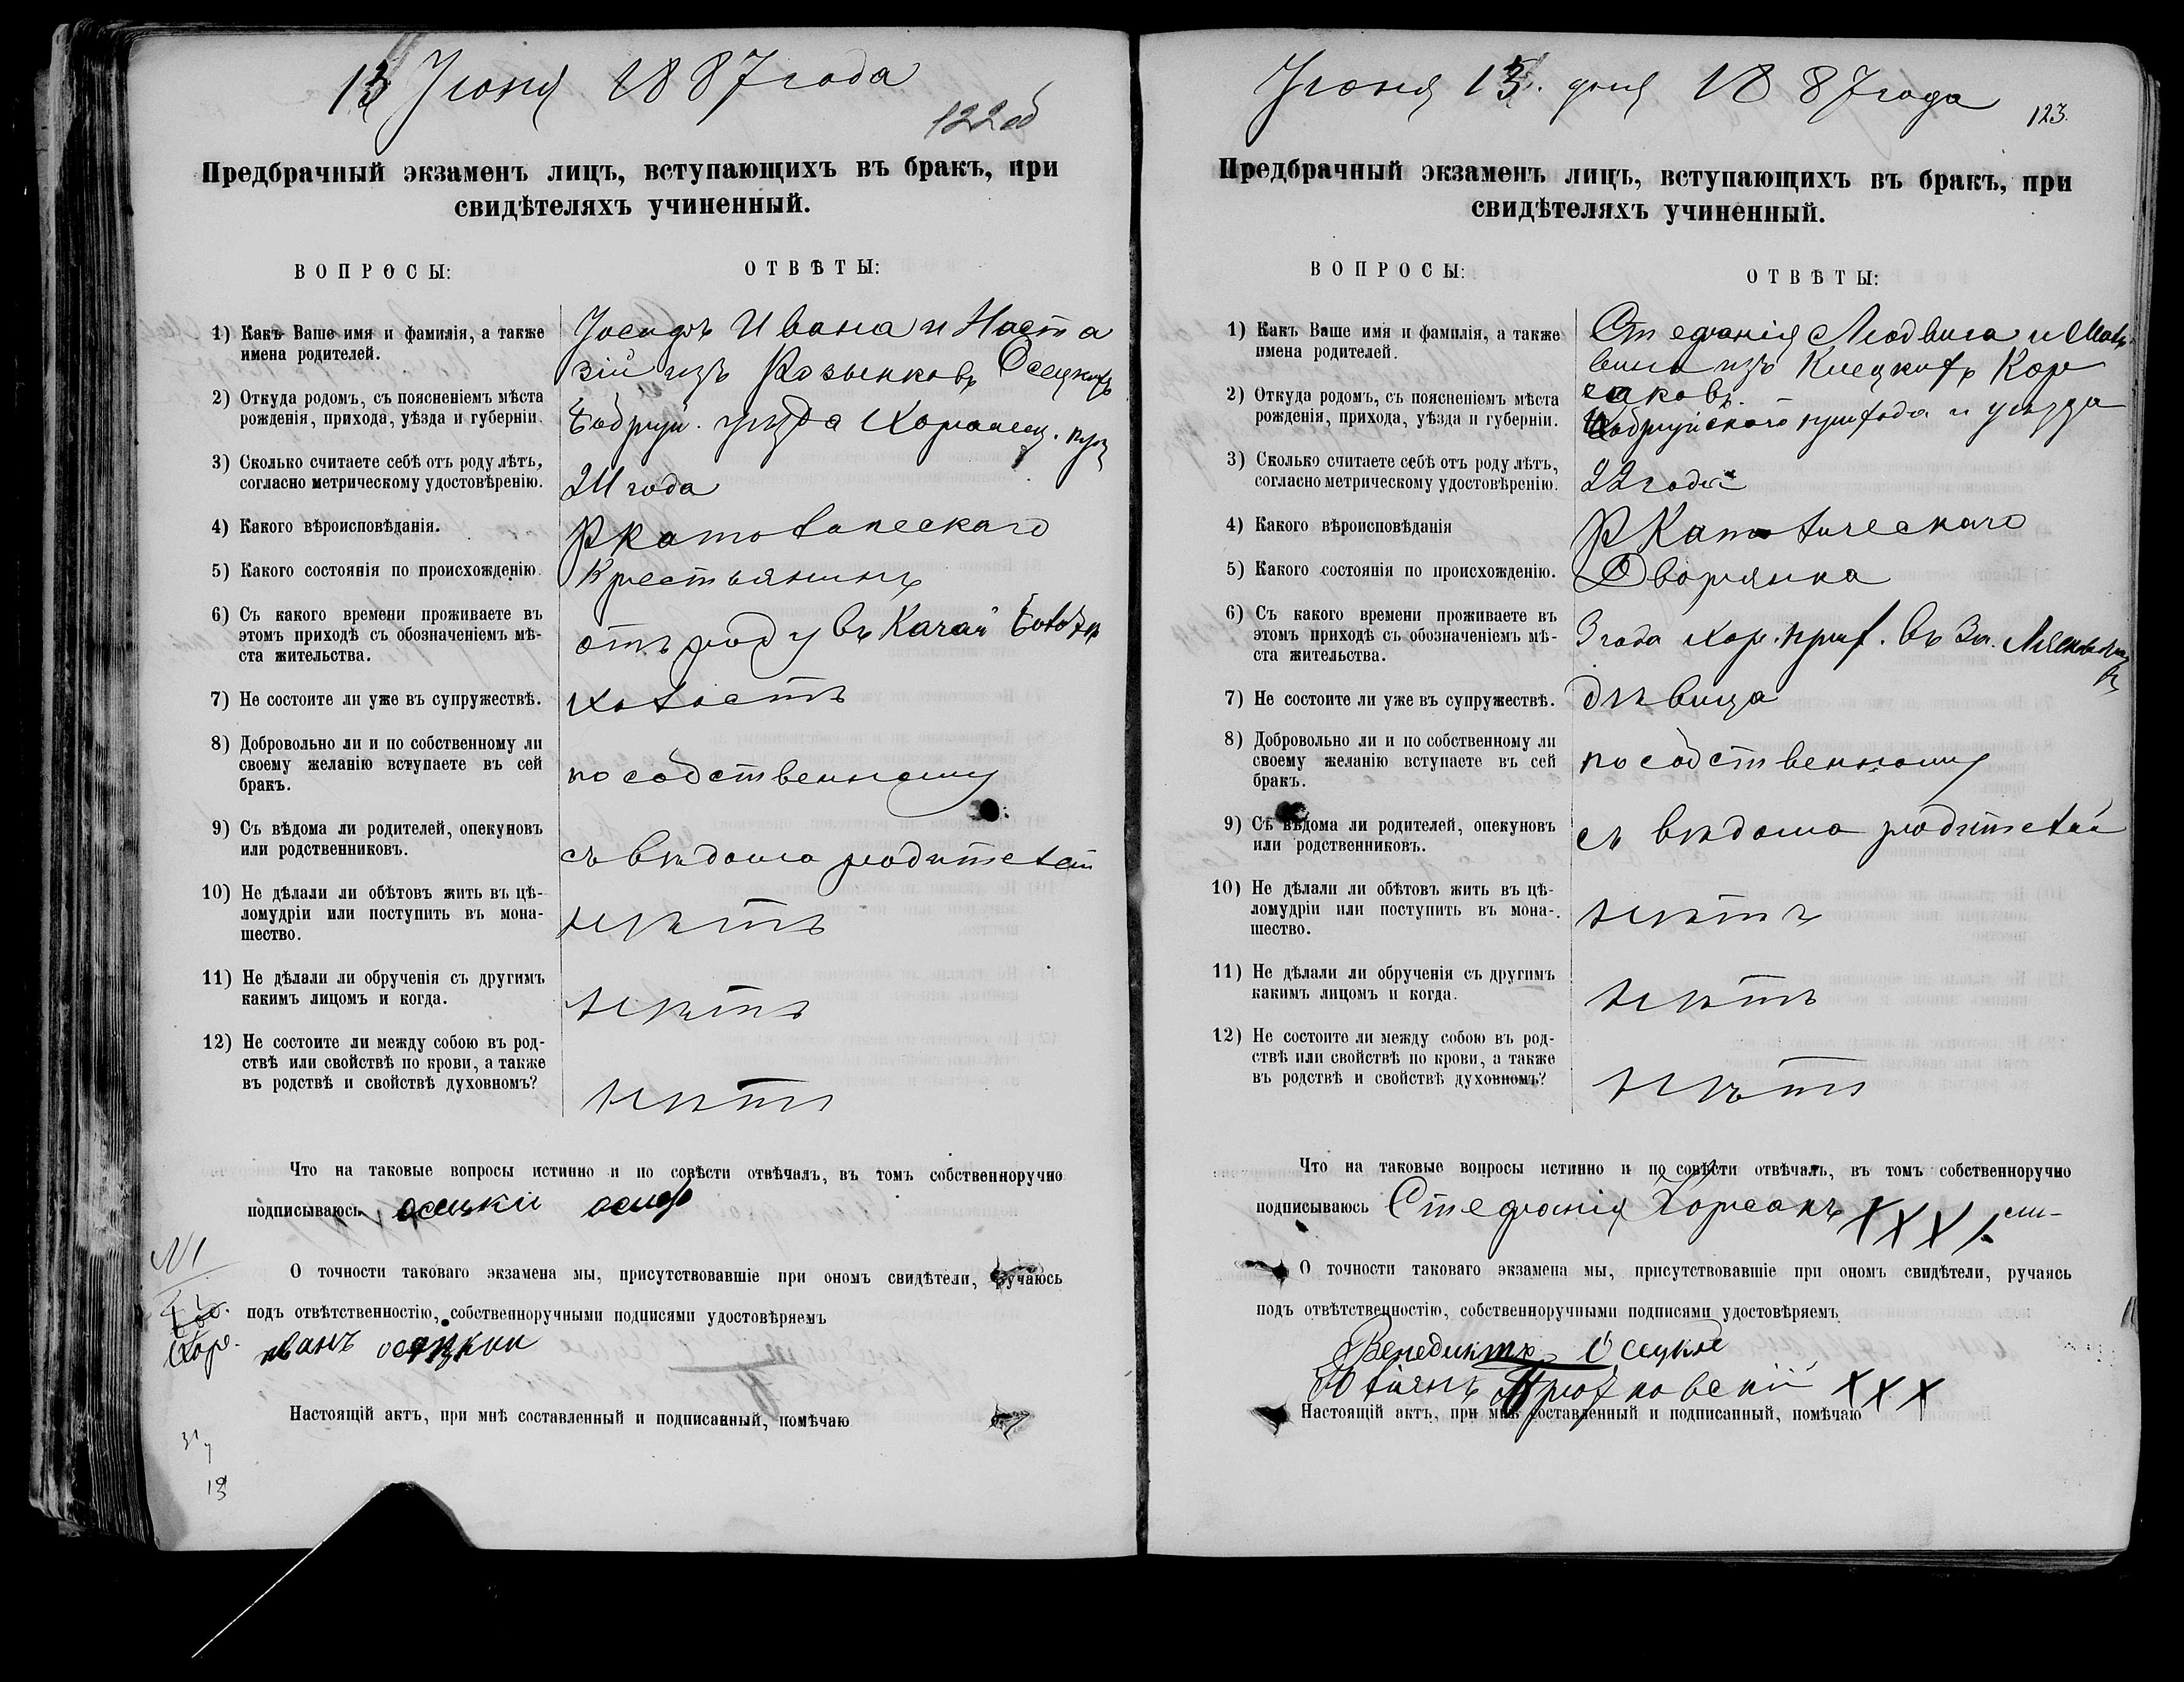 13 Іюня 1887 года
122об
Предбрачный экзаменъ лицъ, вступающихъ въ бракъ, при
свидѣтеляхъ учиненный.
ВОПРОСЫ:
ОТВѢТЫ:
1) Какъ Ваше имя и фамилія, а также
имена родителей.
Іосифъ Ивана и Наста
зіи изъ Розынковъ Осецкихъ
2) Откуда родомъ, съ поясненіемъ мѣста
рожденія, прихода, уѣзда и губерніи.
Бобруй. уѣзда
3) Сколько считаете себѣ отъ роду лѣтъ,
согласно метрическому удостовѣренію.
года
4) Какого вѣроисповѣданія.
РКатолическаго
5) Какого состоянія по происхожденію.
Крестьянинъ
6) Съ какого времени проживаете въ
этомъ приходѣ съ обозначеніемъ мѣ-
ста жительства.
отъ роду въ Качай
7) Не состоите ли уже въ супружествѣ.
холостъ
8) Добровольно ли и по собственному ли
своему желанію вступаете въ сей
бракъ.
по собственному
9) Съ вѣдома ли родителей, опекуновъ
или родственниковъ.
съ вѣдома родителей
10) Не дѣлали ли обѣтовъ жить въ цѣ-
ломудріи или поступить въ мона-
шество.
нѣтъ
11) Не дѣлали ли обрученія съ другимъ
какимъ лицомъ и когда.
нѣтъ
12) Не состоите ли между собою въ род-
ствѣ или свойствѣ по крови, а также
въ родствѣ и свойствѣ духовномъ?
нѣтъ
Что на таковые вопросы истинно и по совѣсти отвѣчалъ, въ томъ собственноручно
подписываюсь осецкіи осифъ
№1
О точности таковаго экзамена мы, присутствовавшіе при ономъ свидѣтели, ручаюсь
подъ отвѣтственностію, собственноручными подписями удостовѣряемъ
Кор.
иванъ осецкии
Настоящій актъ, при мнѣ составленный и подписанный, помѣчаю
13
Іюня 13. дня 1887 года
123.
Предбрачный экзаменъ лицъ, вступающихъ въ бракъ, при
свидѣтеляхъ учиненный.
ВОПРОСЫ:
ОТВѢТЫ:
1) Какъ Ваше имя и фамилія, а также
имена родителей.
Стефанія Людвига и
изъ Клецкихъ Кор
саковъ.
2) Откуда родомъ, съ поясненіемъ мѣста
рожденія, прихода, уѣзда и губерніи.
Бобруйскаго прихода и уѣзда
3) Сколько считаете себѣ отъ роду лѣтъ,
согласно метрическому удостовѣренію.
22 года
4) Какого вѣроисповѣданія
РКатолическаго
5) Какого состоянія по происхожденію.
Дворянка
6) Съ какого времени проживаете въ
этомъ приходѣ съ обозначеніемъ мѣ-
ста жительства.
3 года Хор. прих. въ
7) Не состоите ли уже въ супружествѣ.
дѣвица
8) Добровольно ли и по собственному ли
своему желанію вступаете въ сей
бракъ.
по собственному
9) Съ вѣдома ли родителей, опекуновъ
или родственниковъ.
съ вѣдома родителей
10) Не дѣлали ли обѣтовъ жить въ цѣ-
ломудріи или поступить въ мона-
шество.
нѣтъ
11) Не дѣлали ли обрученія съ другимъ
какимъ лицомъ и когда.
нѣтъ
12) Не состоите ли между собою въ род-
ствѣ или свойствѣ по крови, а также
въ родствѣ и свойствѣ духовномъ?
нѣтъ
Что на таковые вопросы истинно и по совѣсти отвѣчалъ, въ томъ собственноручно
подписываюсь Стефанія Корсакъ XXX
О точности таковаго экзамена мы, присутствовавшіе при ономъ свидѣтели, ручаясь
подъ отвѣтственностію, собственноручными подписями удостовѣряемъ
Венедиктъ Осецкіе
Юліянъ XXX
Настоящій актъ, при мнѣ составленный и подписанный, помѣчаю